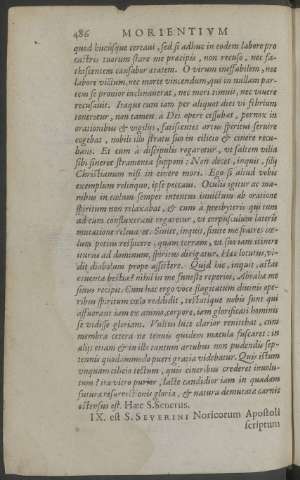 486 MORIENTIVM
quod hucusque certaui, sed si adhuc in eodem labore pro
castris tuorum stare me præcipis, non recuso, nec fa-
thiscentem causabor ætatem. O virum ineffabilem, nec
labore victum, nec morte vincendum, qui in nullam par-
tem se pronior inclinauerat, nec mori timuit, nec viuere
recusauit. Itaque cum iam per aliquot dies vi febrium
teneretur, non tamen à Dei opere cessabat, pernox in
orationibus & vigiliis, fatiscentes artus spiritui seruire
cogebat, nobili illo stratu suo in cilicio & cinere recu-
bans. Et cum à discipulis rogaretur, vt saltem vilia
sibi sineret stramenta supponi: Non decet, inquit, filij
Christianum nisi in cinere mori. Ego si aliud vobis
exemplum relinquo, ipse peccaui. Oculis igitur ac ma-
nibus in cælum semper intentus inuictum ab oratione
spiritum non relaxabat, & cum à presbyteris qui tum
ad eum conuenerant rogaretur, vt corpusculum lateris
mutatione releuaret: Sinite, inquit, sinite me fratres cœ-
lum potius respicere, quam terram, vt suo iam itinere
iturus ad dominum, spiritus dirigatur. Hæc locutus, vi-
dit diabolum prope assistere. Quid hic, inquit, astas
cruenta bestia? nihil in me funeste reperies, Abrahæ me
sinus recipit. Cum hac ergo voce
spiritum cœlo reddidit, testatique nobis sunt qui
affuerant iam ex anima corpore, iam glorificati hominis
se vidisse gloriam. Vultus luce clarior renitebat, cum
membra cetera ne tenuis quidem macula fuscaret: in
aliis etiam & in isto tantum artubus non pudendis sep-
tennis quodammodo pueri gratia videbatur. Quis istum
vnquam cilicio tectum, quis cineribus crederet inuolu-
tum? ita vitro purior, lacte candidior iam in quadam
futuræ resurrectionis gloria, & natura demutata carnis
ostensus est. Hæc S. Seuerus.
IX. est S. SEVERINI Noricorum Apostoli
scriptum